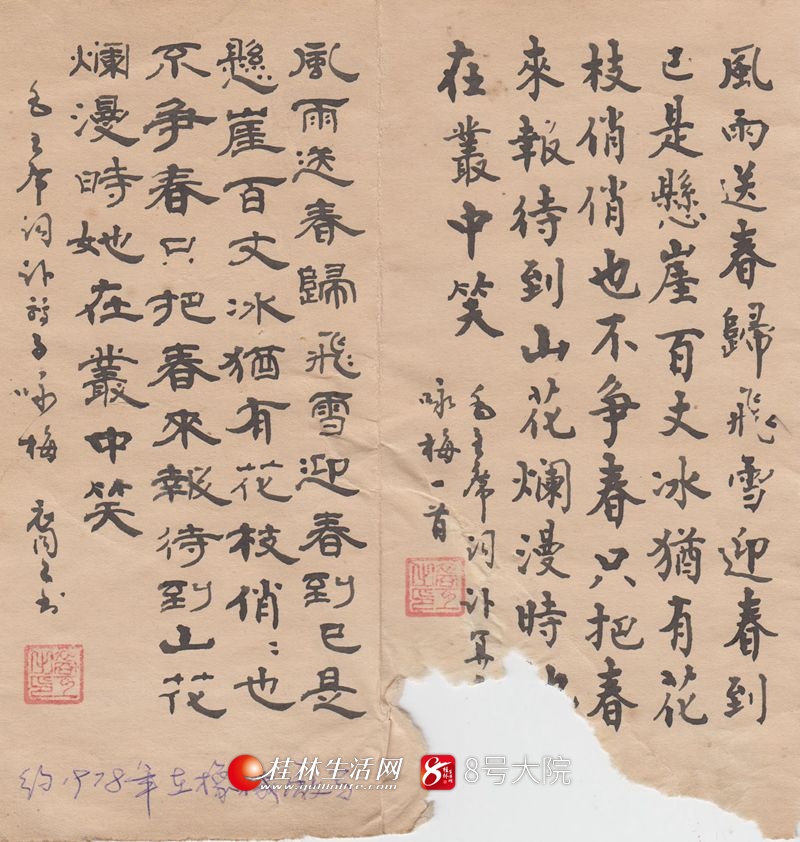 風雨送春歸飛雪迎春到
已是懸崖百丈冰猶有花
枝俏俏也不争春只把春
來報待到山花爛漫時
在叢中笑
毛主席词卜算
咏梅一首
風雨送春歸飛雪迎春到已是
懸崖百丈冰猶有花枝俏〻也
不争春只把春來報待到山花
爛漫時她在叢中笑
毛主席词卜算子咏梅 书
约1978年在橡
桂林生活网
www.guilinlife.com
8号大院